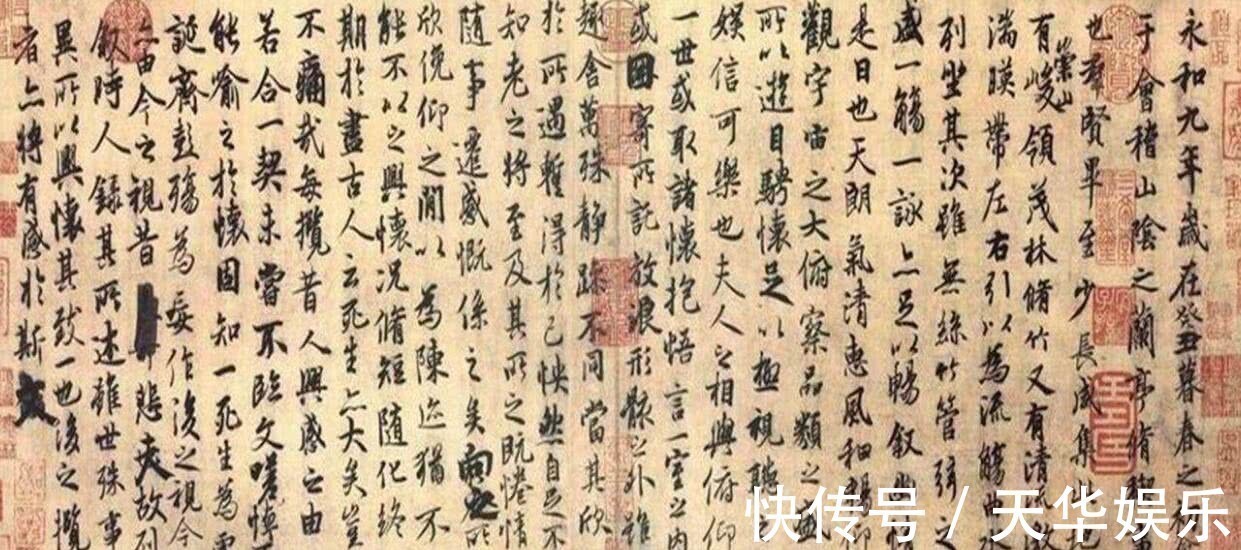 永和九年歲在癸丑暮春之
于會稽山陰之蘭亭脩禊
也群賢畢至少長咸集此地
有崇山峻領茂林脩竹又有清
湍暎帶左右引以為流觴曲水
列坐其次雖無絲竹管弦之
盛一觴一詠亦足以暢敘幽情
是日也天朗氣清惠風和暢仰
觀宇宙之大俯察品類之盛
所以遊目騁懷足以極視聽
娛信可樂也夫人之相與俯仰
一世或取諸懷抱悟言一室之內
或因寄所託放浪形骸之外雖
趣舍萬殊靜躁不同當其欣
於所遇暫得於己怏然自足不
知老之將至及其所之既惓情
隨事遷感慨係之矣向之所
欣俛仰之閒以為陳迹猶不
能不以之興懷況脩短隨化終
期於盡古人云死生亦大矣豈
不痛哉每攬昔人興感之由
若合一契未嘗不臨文嗟悼
能喻之於懷固知一死生為虛
誕齊彭殤為妄作後之視今
亦由今之視昔悲夫故列
敘時人錄其所述雖世殊事
異所以興懷其致一也後之攬
者亦將有感於斯文
快传号 / 天华娱乐